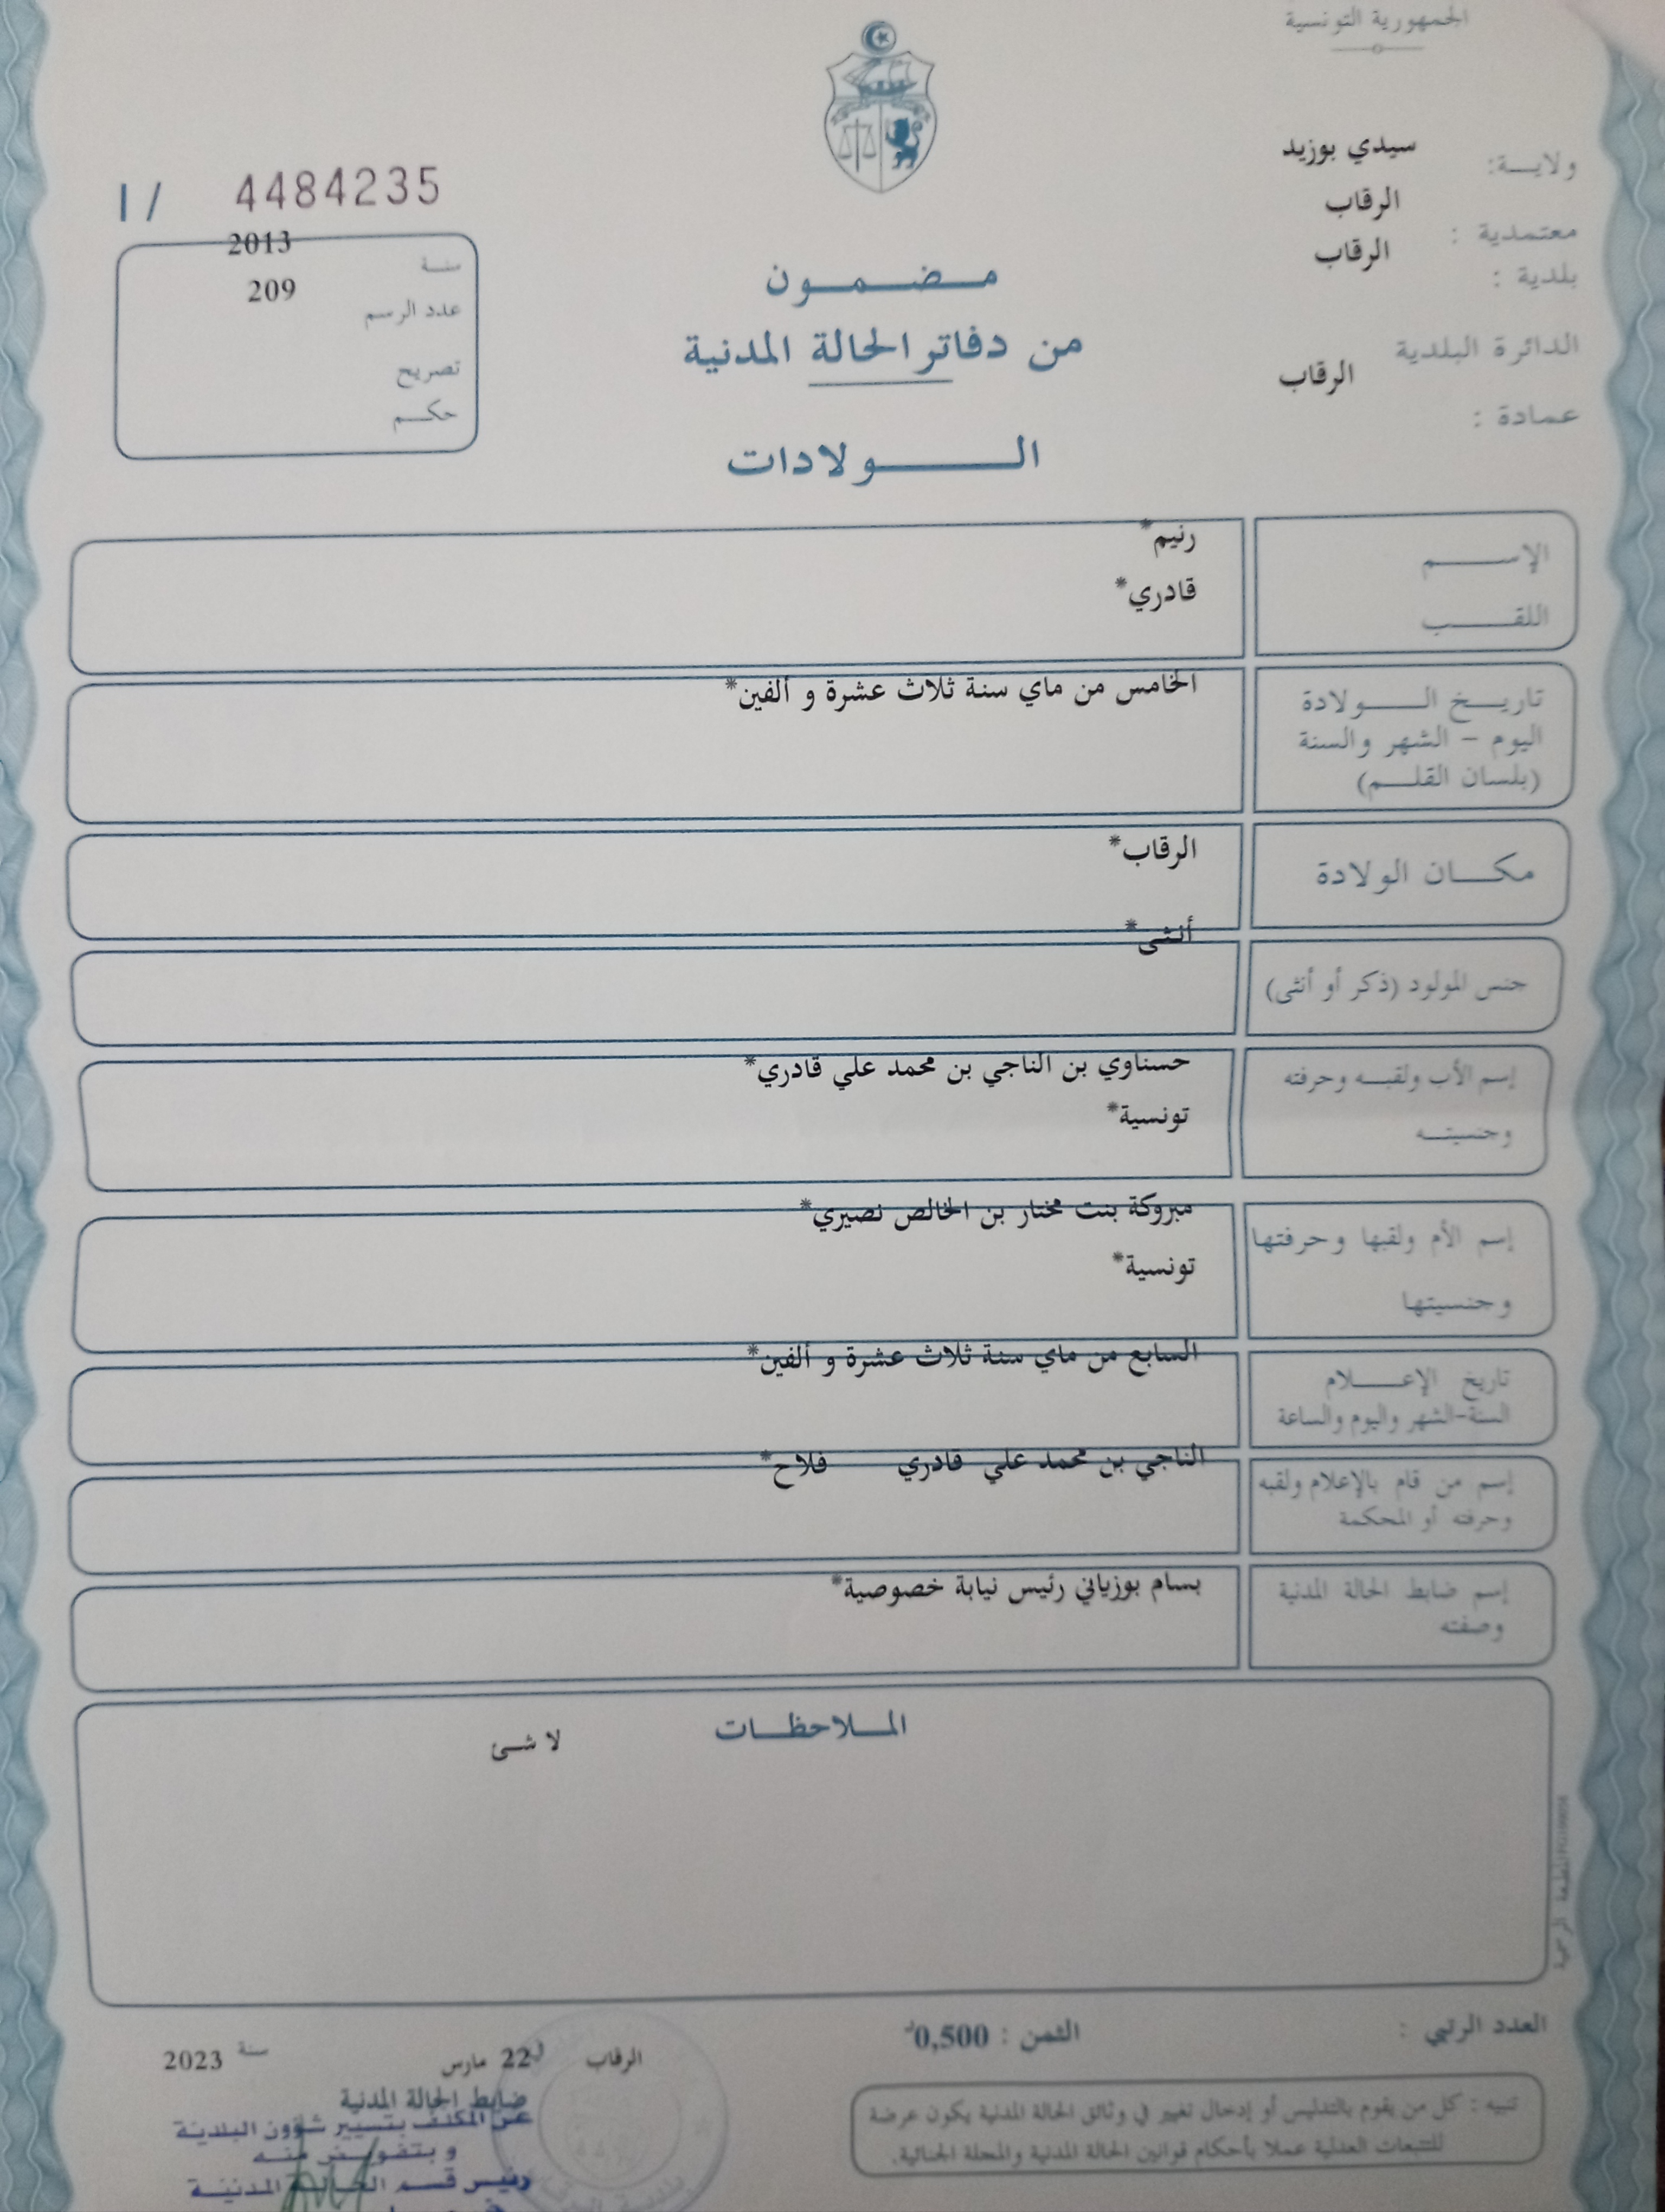 الجمهورية التونسية
ولايـــة: سيدي بوزيد
معتمدية : الرقاب
بلدية : الرقاب
الدائرة البلدية
الرقاب
عمادة :
I / 4484235
سنـة 2013
عدد الرسم 209
تصريح
حكـــم
مـــضـــمـــون
من دفاتر الحالة المدنية
الـــــولادات
الإســـــم رنيم*
اللقـــــب قادري*
تاريـــخ الـــــولادة الخامس من ماي سنة ثلاث عشرة و ألفين*
اليوم - الشهر والسنة
(بلسان القلـــم)
مكـــان الولادة الرقاب*
جنس المولود (ذكر أو أنثى) أنثى*
إسم الأب ولقبـــه وحرفته حسناوي بن الناجي بن محمد علي قادري*
وجنسيتـــه تونسية*
إسم الأم ولقبها وحرفتها مبروكة بنت مختار بن الخالص نصيري*
وجنسيتها تونسية*
تاريخ الإعـــــلام السابع من ماي سنة ثلاث عشرة و ألفين*
السنة-الشهر واليوم والساعة
إسم من قام بالإعلام ولقبه الناجي بن محمد علي قادري فلاح*
وحرفته أو المحكمة
إسم ضابط الحالة المدنية بسام بوزياني رئيس نيابة خصوصية*
وصفته
المـــلاحظـــات
لا شئ
المطبعة الرسمية
العدد الرتبي :
الثمن : 0,500د
الرقاب في 22 مارس سنة 2023
ضابط الحالة المدنية
عن المكلف بتسيير شؤون البلدية
و بتفويض منه
رئيس قسم الحالة المدنية
بلدية الرقاب
تنبيه : كل من يقوم بالتدليس أو إدخال تغيير في وثائق الحالة المدنية يكون عرضة
للتتبعات العدلية عملا بأحكام قوانين الحالة المدنية والمجلة الجنائية.